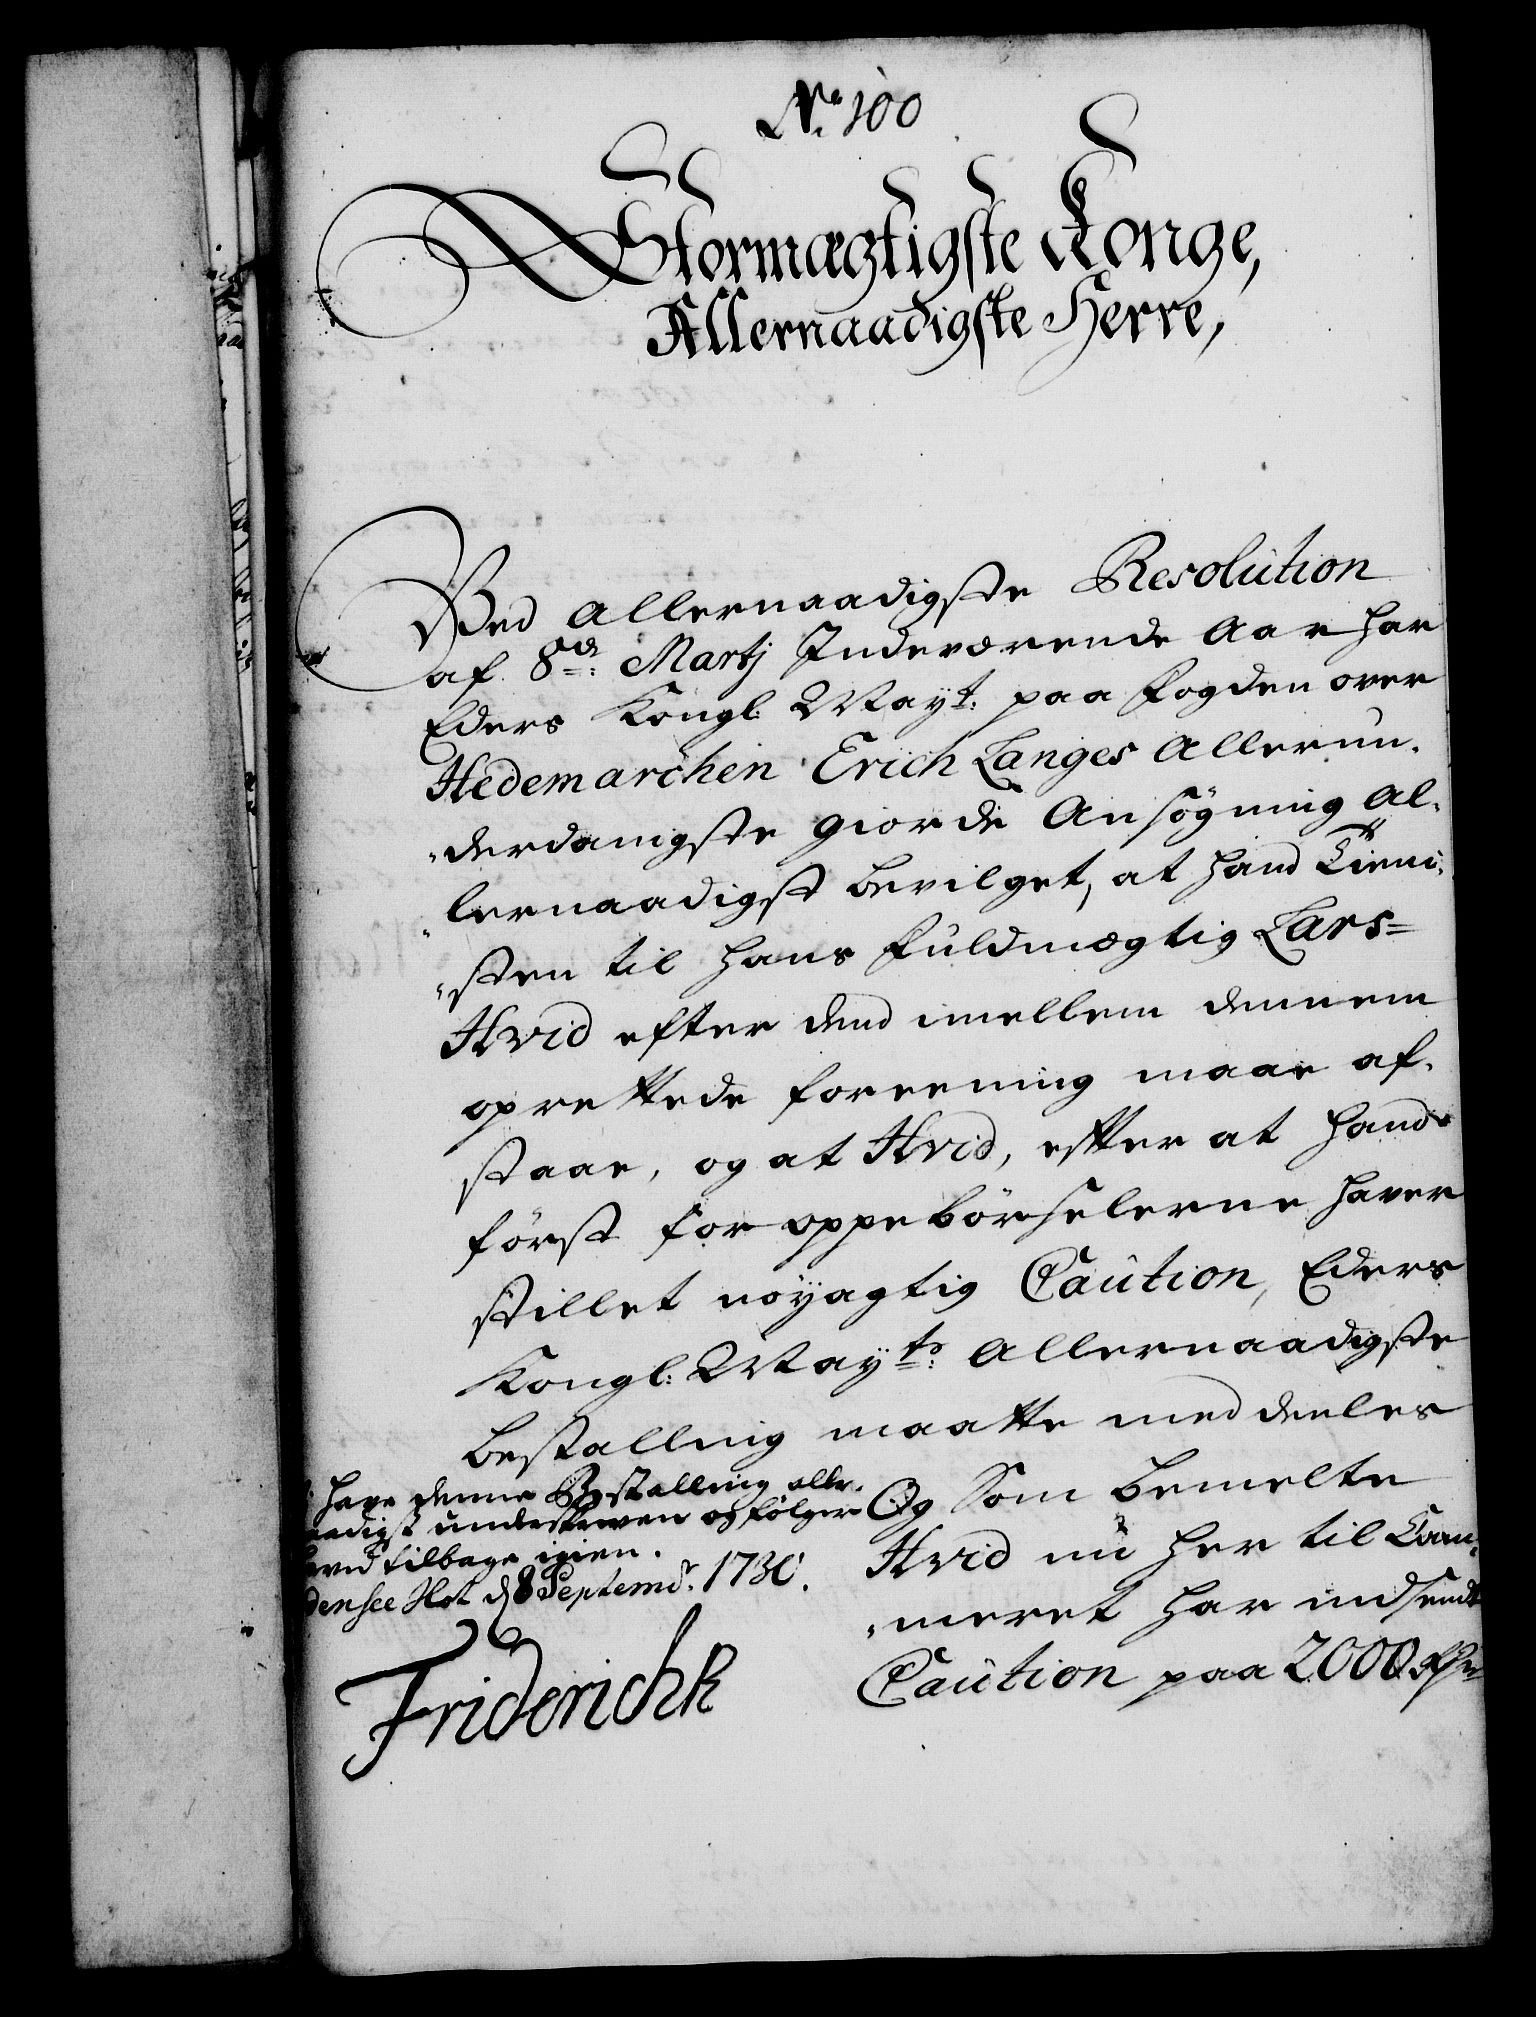 No. 100
Stormægtigste Konge,
Allernaadigste Herre,
Ved Allernaadigste Resolution
af 8de: Martj Indeværende Aar har
Eders Kongl: Mayt: paa fogden over
Hedemarchen Erich Langes Allerun-
„derdanigste giorde Ansøgning Al-
„lernaadigst bevilget, at hand Tieni-
„sten til hans fuldmægtig Lars=
Hvid efter dend imellem dennem
oprettede foreening maae af-
staae, og at Hvid, efter at hand
først for oppebørselerne haver
stillet nöyagtig Caution, Eders
Kongl: Mayts: Allernaadigste
bestalling maatte meddeeles
Og Som bemelte
Hvid nu her til Cam-
„meret har indsendt
Caution paa 2000
have denne Bestalling aller-
naadigst underskreven og følger
herved tilbage igien.
densee Slot d 8 Septembr. 1730.
FriderichR